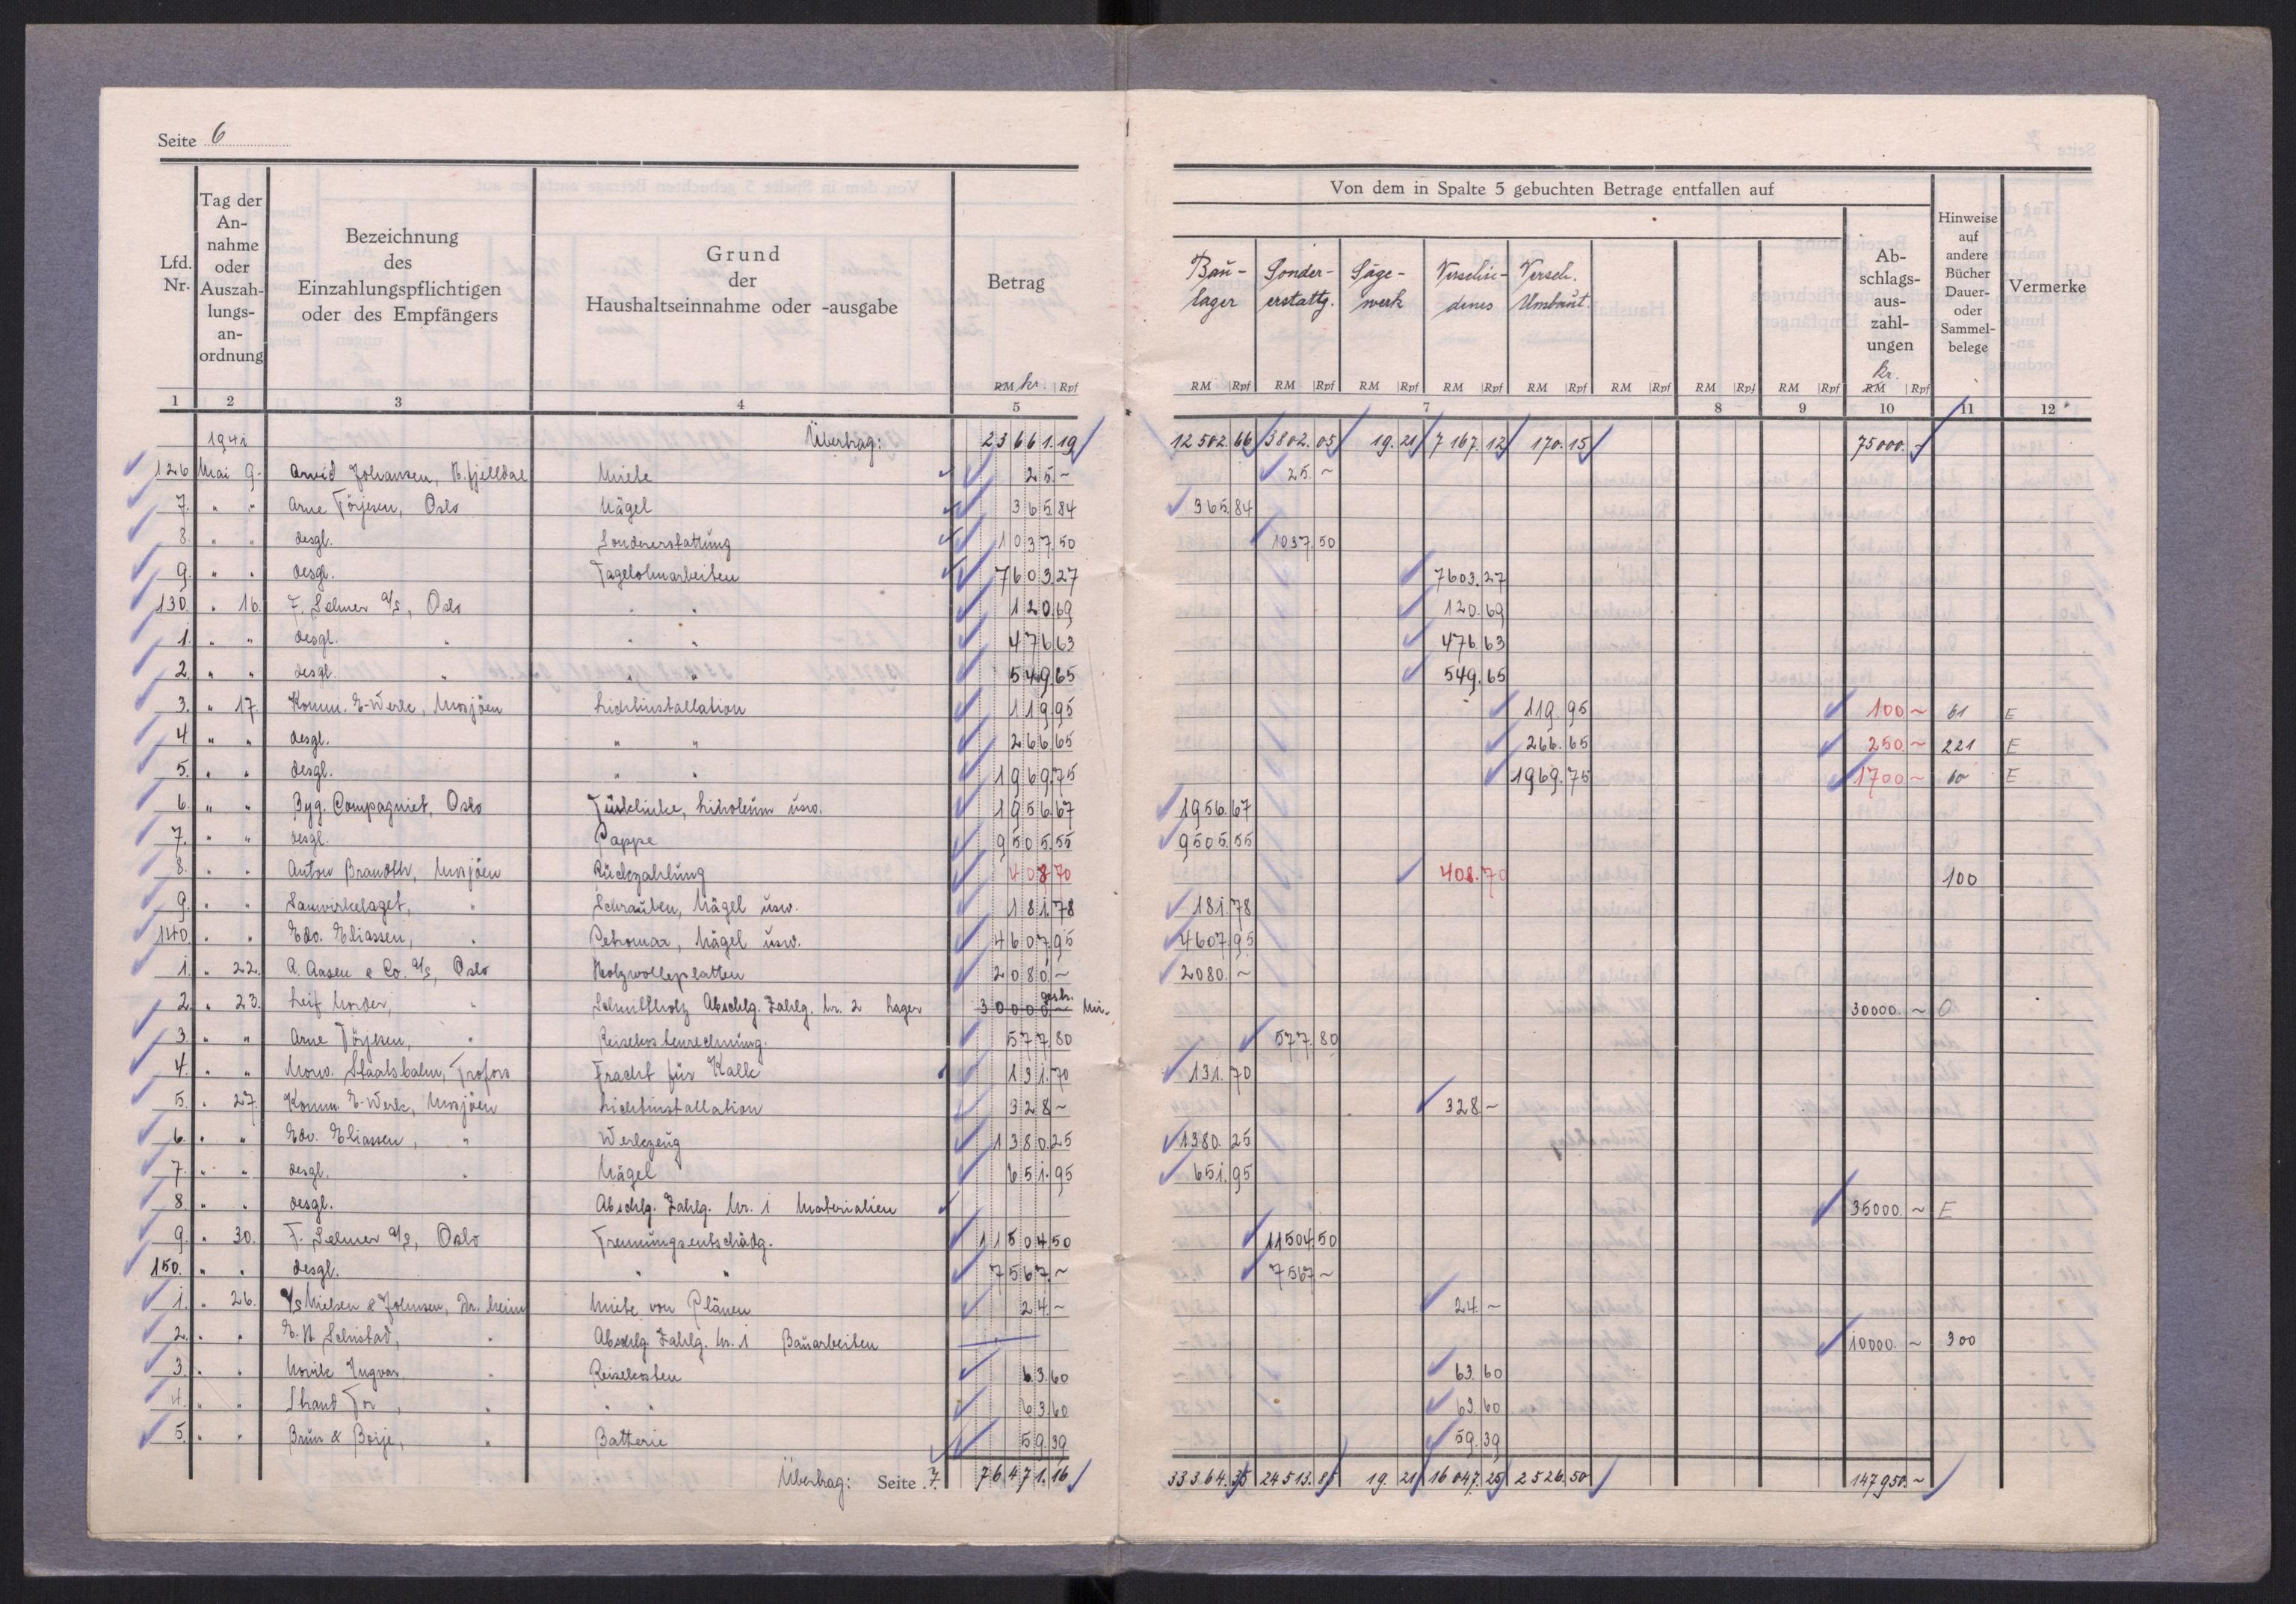 Seite 6
Lfd. Nr.
Tag der An-nahme oder Auszah-lungs-an-ordnung
Bezeichnung des Einzahlungspflichtigen oder des Empfängers
Grund der Haushaltseinnahme oder -ausgabe
Betrag
RM kr. Rpf
Von dem in Spalte 5 gebuchten Betrage entfallen auf
Bau-lager
Sonder-erstattg.
Säge-werk
Verschie-denes
Versch. Umbaut.
Ab-schlags-aus-zahl-ungen
kr.
Hinweise auf andere Bücher Dauer- oder Sammel-belege
Vermerke
RM Rpf RM Rpf RM Rpf RM Rpf RM Rpf RM Rpf RM Rpf RM Rpf RM Rpf
1 2 3 4 5 7 8 9 10 11 12
1941 Übertrag: 23661.19 12502.66 3802.05 19.21 7167.12 170.15 75000.-
126 Mai 9. Arvid Johansen, B.fjelldal Miete 25.- 25.-
7. " " Arne Törjesen, Oslo Nägel 365.84 365.84
8. " " desgl. Sondererstattung 1037.50 1037.50
9. " " desgl. Tagelohnarbeiten 7603.27 7603.27
130. " 16. F. Selmer A/S, Oslo " " 120.69 120.69
1. " " desgl. " " " 476.63 476.63
2. " " desgl. " " " 549.65 549.65
3. " 17. Komm. E-Werk, Mosjöen Lichtinstallation 119.95 119.95 100 ~ 61 E
4. " " desgl. " " 266.65 266.65 250 ~ 221 E
5. " " desgl. " " 1969.75 1969.75 1700 ~ 60 E
6. " " Byg. Compagniet, Oslo Türklinke, Linoleum usw. 1956.67 1956.67
7. " " desgl. Pappe 9505.55 9505.55
8. " " Anton Brandth, Mosjöen Rückzahlung 408.70 408.70 100
9. " " Samvirkelaget, " Schrauben, Nägel usw. 181.78 181.78
140. " " Edv. Eliassen, " Petromax, Nägel usw. 4607.95 4607.95
1. " 22. A. Aasen & Co. A/S, Oslo Holzwolleplatten 2080 ~ 2080. ~
2. " 23. Leif Morder, " Schnittholz Abschlg. Zahlg. Nr. 2 Lager 30000 ~ gestr. 30000. ~ O
3. " " Arne Törjesen, " Reisekostenrechnung. 577.80 577.80
4. " " Norw. Staatsbahn, Trofors Fracht für Kalk 131.70 131.70
5. " 27. Komm. E-Werk, Mosjöen Lichtinstallation 328 ~ 328 ~
6. " " Edv. Eliassen, " Werkzeug 1380.25 1380.25
7. " " desgl. " Nägel 651.95 651.95
8. " " desgl. Abschlg. Zahlg. Nr. 1 Materialien 35000. ~ E
9. " 30. F. Selmer A/S, Oslo Trennungsentschädg. 11504.50 11504.50
150. " " desgl. " " 7567. ~ 7567 ~
1. " 26. A/S Nielsen & Johnsen, Dr.heim Miete von Plänen 24. ~ 24. ~
2. " " E. N. Schistad, " Abschlg. Zahlg. Nr. 1 Bauarbeiten 10000. ~ 300
3. " " Ingvar " Reisekosten 63.60 63.60
4. " " Strand Tor, " " " 63.60 63.60
5. " " Brun & Boije, " Batterie 59.39 59.39
Übertrag: Seite 7. 76471.16 33364.35 24513.85 19.21 16047.25 2526.50 147950 ~